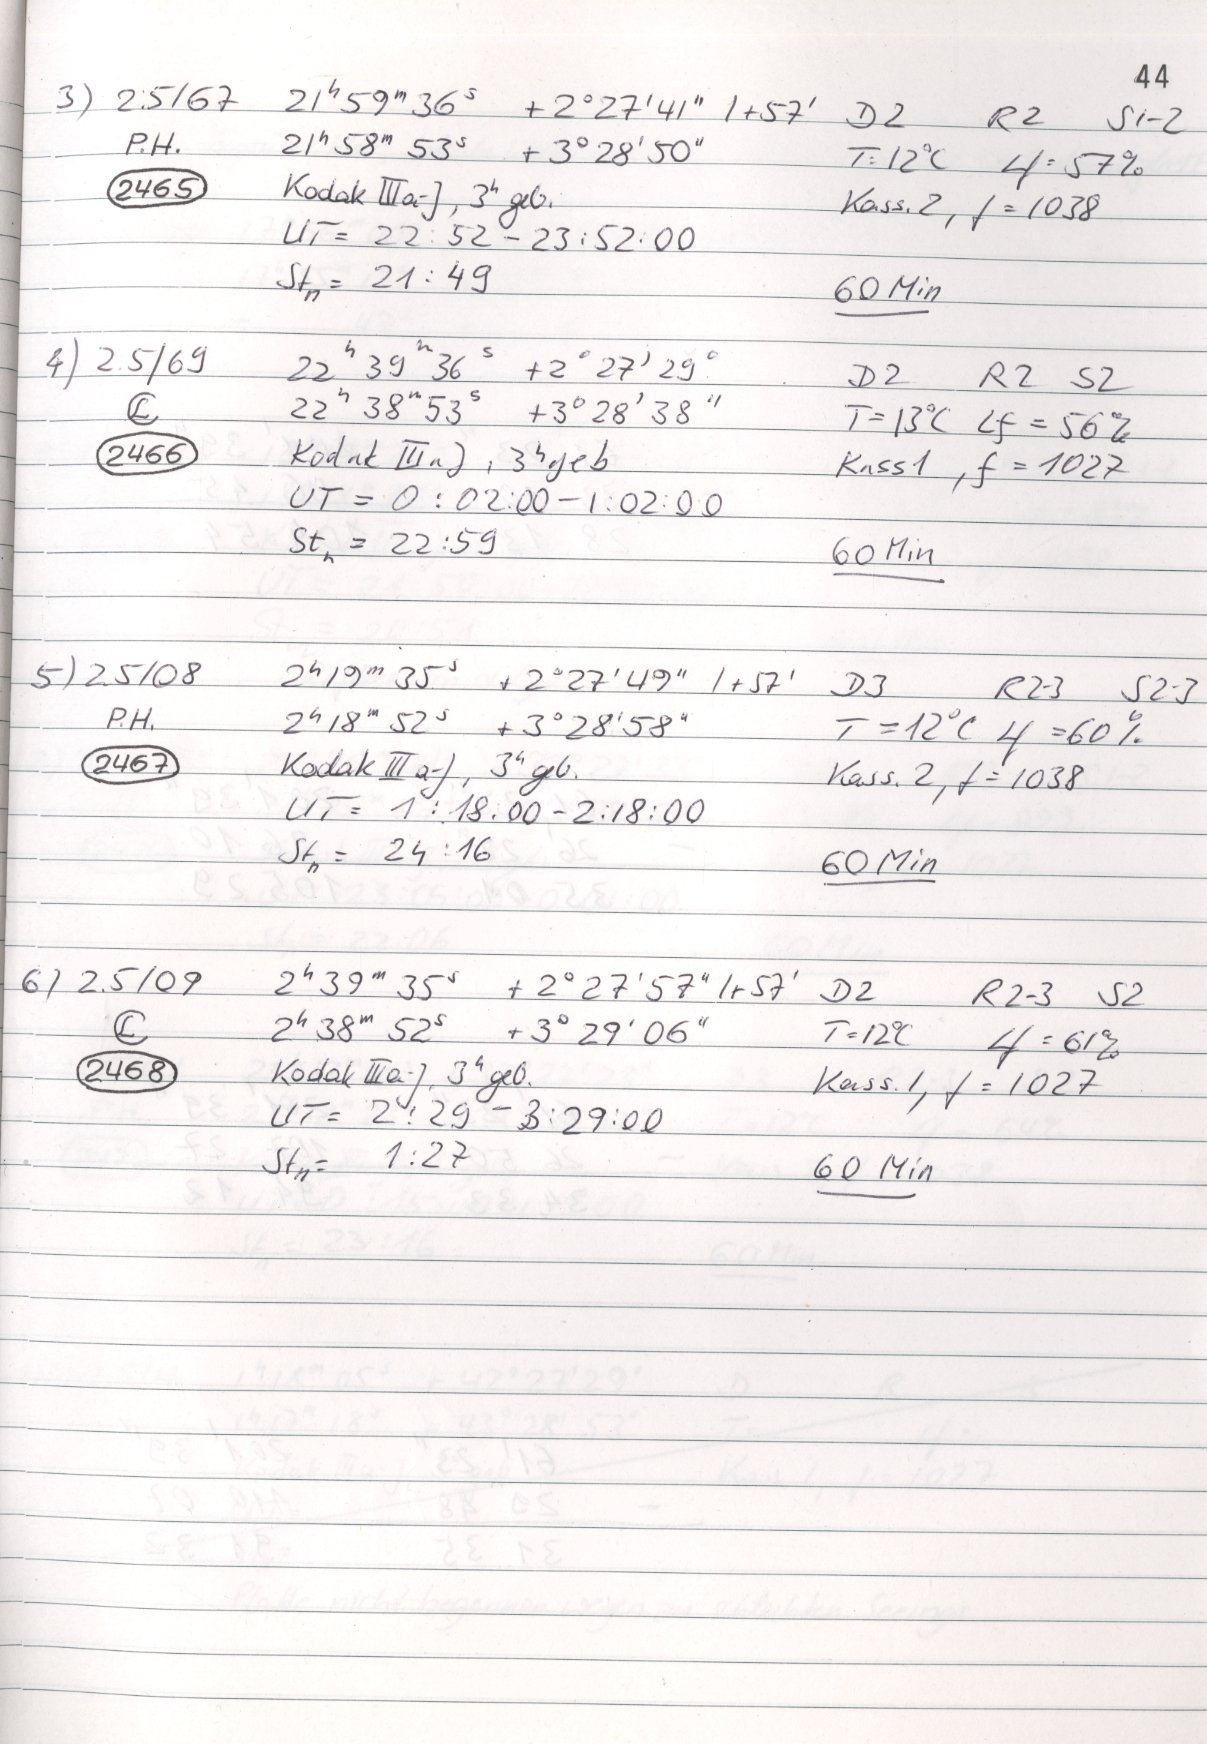 44
3) 2.5/67 21ʰ59ᵐ36ˢ +2°27'41" /+57' D2 R2 S1-2
P.H. 21ʰ58ᵐ53ˢ +3°28'50" T=12°C Lf=57%
2465 Kodak IIIa-J, 3ʰ geb. Kass. 2, f=1038
UT= 22:52-23:52:00
Stₙ= 21:49 60 Min
4) 2.5/69 22ʰ39ᵐ36ˢ +2°27'29" D2 R2 S2
22ʰ38ᵐ53ˢ +3°28'38" T=13°C Lf=56%
2466 Kodak IIIaJ, 3ʰ geb Kass1, f=1027
UT = 0:02:00-1:02:00
Stₙ = 22:59 60 Min
5) 2.5/08 2ʰ19ᵐ35ˢ +2°27'49" /+57' D3 R2-3 S2-3
P.H. 2ʰ18ᵐ52ˢ +3°28'58" T=12°C Lf=60%
2467 Kodak IIIa-J, 3ʰ geb. Kass. 2, f=1038
UT= 1:18:00-2:18:00
Stₙ= 24:16 60 Min
6) 2.5/09 2ʰ39ᵐ35ˢ +2°27'57" /+57' D2 R2-3 S2
2ʰ38ᵐ52ˢ +3°29'06" T=12°C Lf=61%
2468 Kodak IIIa-J, 3ʰ geb. Kass. 1, f=1027
UT= 2:29-3:29:00
Stₙ= 1:27 60 Min